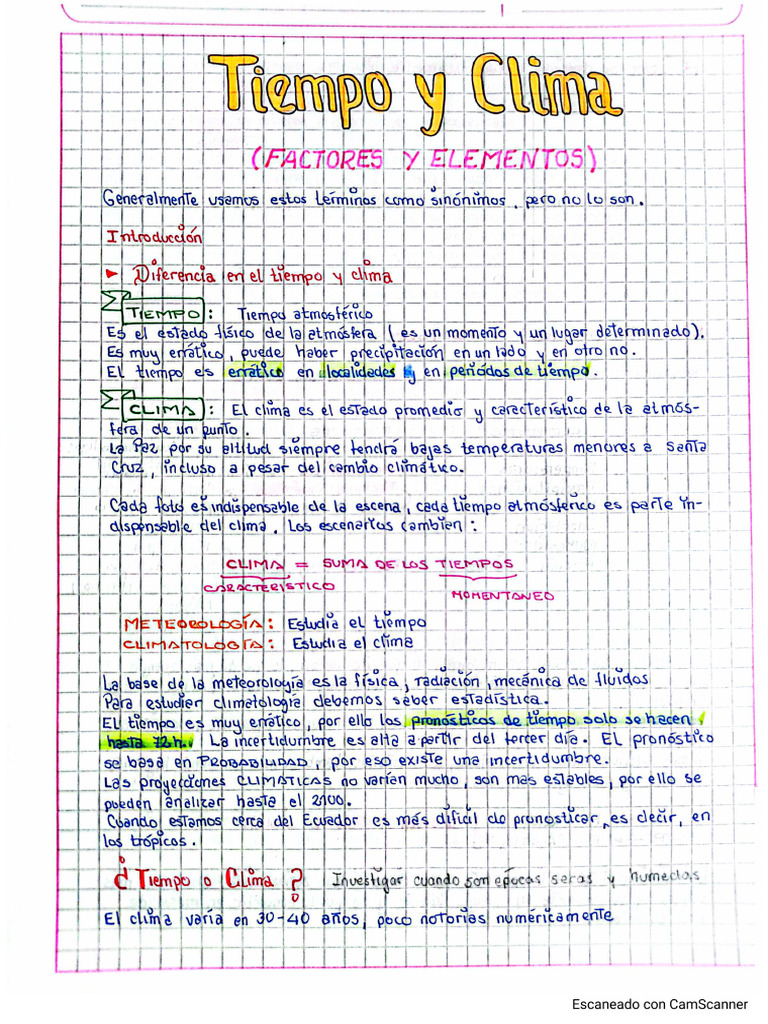 Tiempo y Clima
(FACTORES Y ELEMENTOS)
Generalmente usamos estos términos como sinónimos, pero no lo son.
Introducción
► Diferencia en el tiempo y clima
TIEMPO: Tiempo atmosférico
Es el estado físico de la atmósfera (es un momento y un lugar determinado).
Es muy errático, puede haber precipitación en un lado y en otro no.
El tiempo es errático en localidades y en periodos de tiempo.
CLIMA: El clima es el estado promedio y característico de la atmós-
fera de un punto.
La Paz por su altitud siempre tendrá bajas temperaturas menores a Santa
Cruz, incluso a pesar del cambio climático.
Cada foto es indispensable de la escena, cada tiempo atmósferico es parte in-
dispensable del clima. Los escenarios cambien:
CLIMA = SUMA DE LOS TIEMPOS
CARACTERÍSTICO
MOMENTANEO
METEOROLOGÍA: Estudia el tiempo
CLIMATOLOGÍA: Estudia el clima
La base de la meteorología es la física, radiación, mecánica de fluidos
Para estudier climatología debemos saber estadística.
El tiempo es muy errático, por ello los pronósticos de tiempo solo se hacen
hasta 72h. La incertidumbre es alta a partir del tercer día. El pronóstico
se basa en PROBABILIDAD, por eso existe una incertidumbre.
Las proyecciones CLIMÁTICAS no varían mucho, son mas estables, por ello se
pueden analizar hasta el 2100.
Cuando estamos cerca del Ecuador es más difícil de pronosticar, es decir, en
los trópicos.
¿Tiempo o Clima? Investigar cuando son epocas secas y humedas
El clima varía en 30-40 años, poco notorias numéricamente
Escaneado con CamScanner